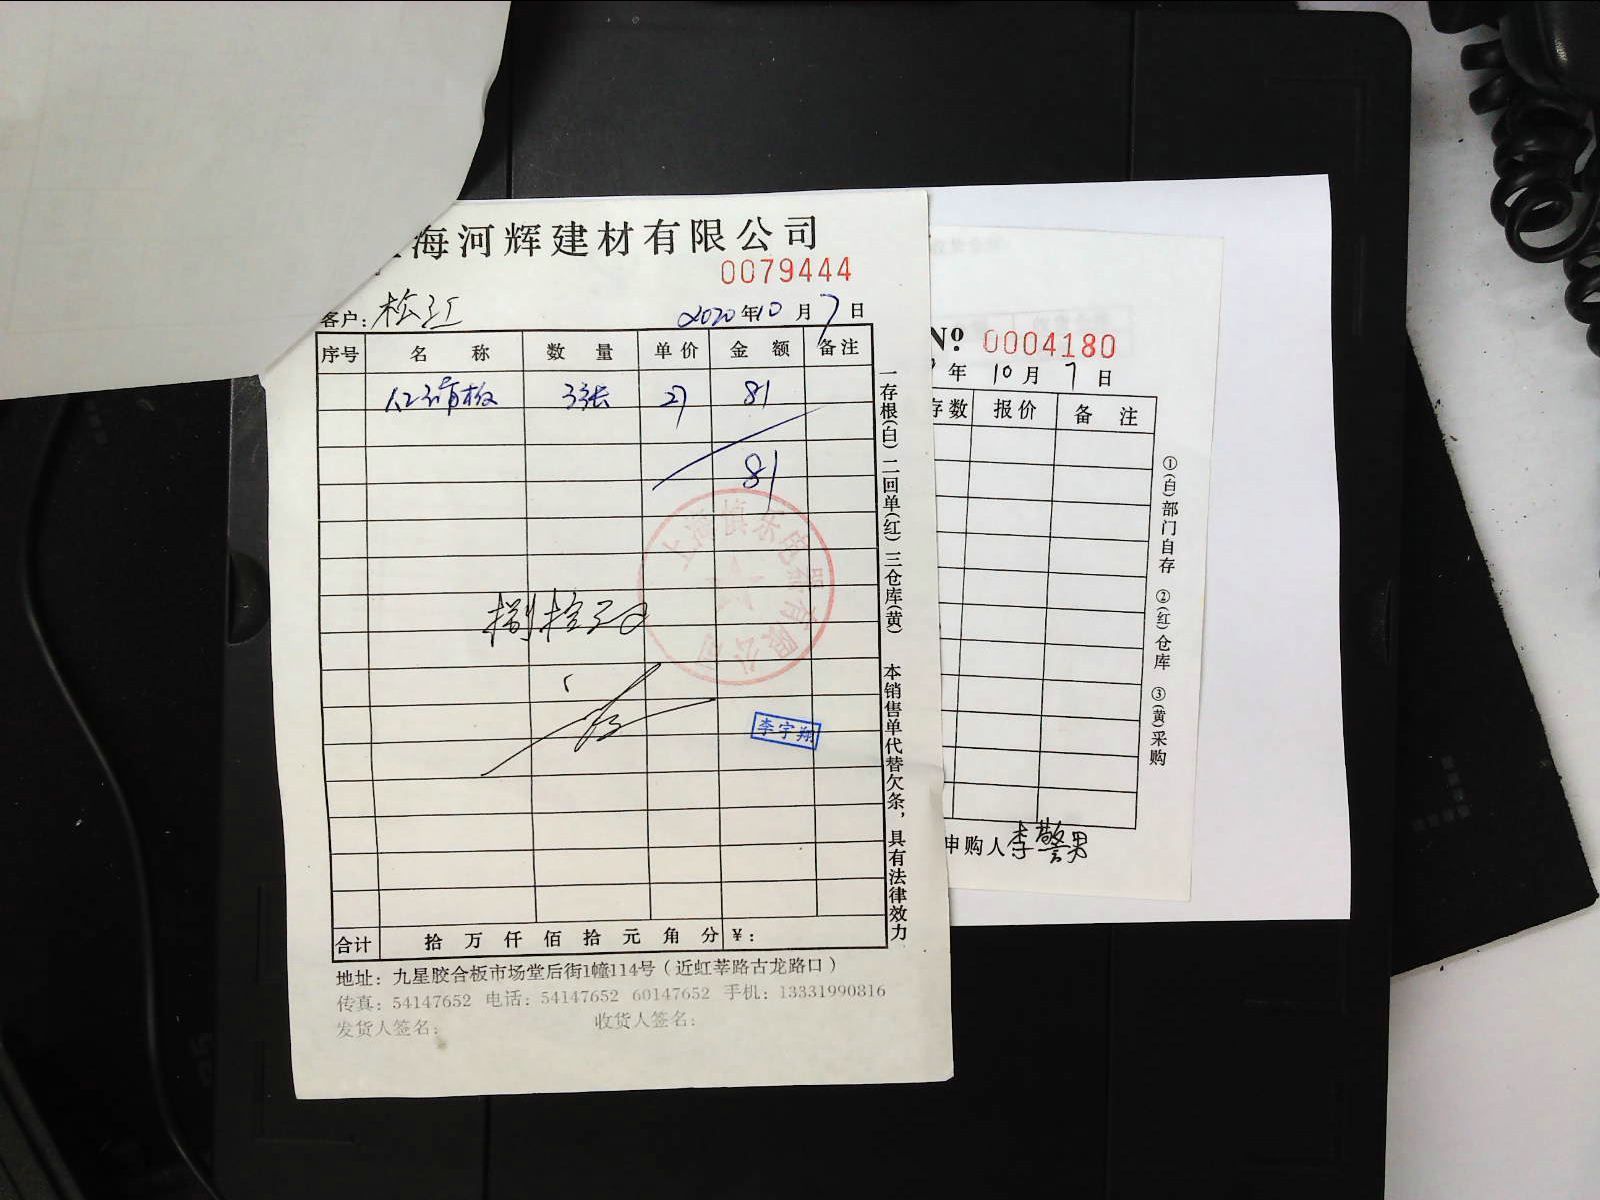 海河辉建材有限公司
0079444
客户: 松江 2020年10月7日
序号 名称 数量 单价 金额 备注
3张 27 81
81
上海慎乐电器有限公司
捌拾
李宇翔
合计 拾 万 仟 佰 拾 元 角 分 ¥:
地址: 九星胶合板市场堂后街1幢114号(近虹莘路古龙路口)
传真: 54147652 电话: 54147652 60147652 手机: 13331990816
发货人签名: 收货人签名:
一存根(白)二回单(红)三仓库(黄) 本销售单代替欠条,具有法律效力
Nº 0004180
年 10月 7日
存数 报价 备注
①(白)部门自存 ②(红)仓库 ③(黄)采购
申购人李警男